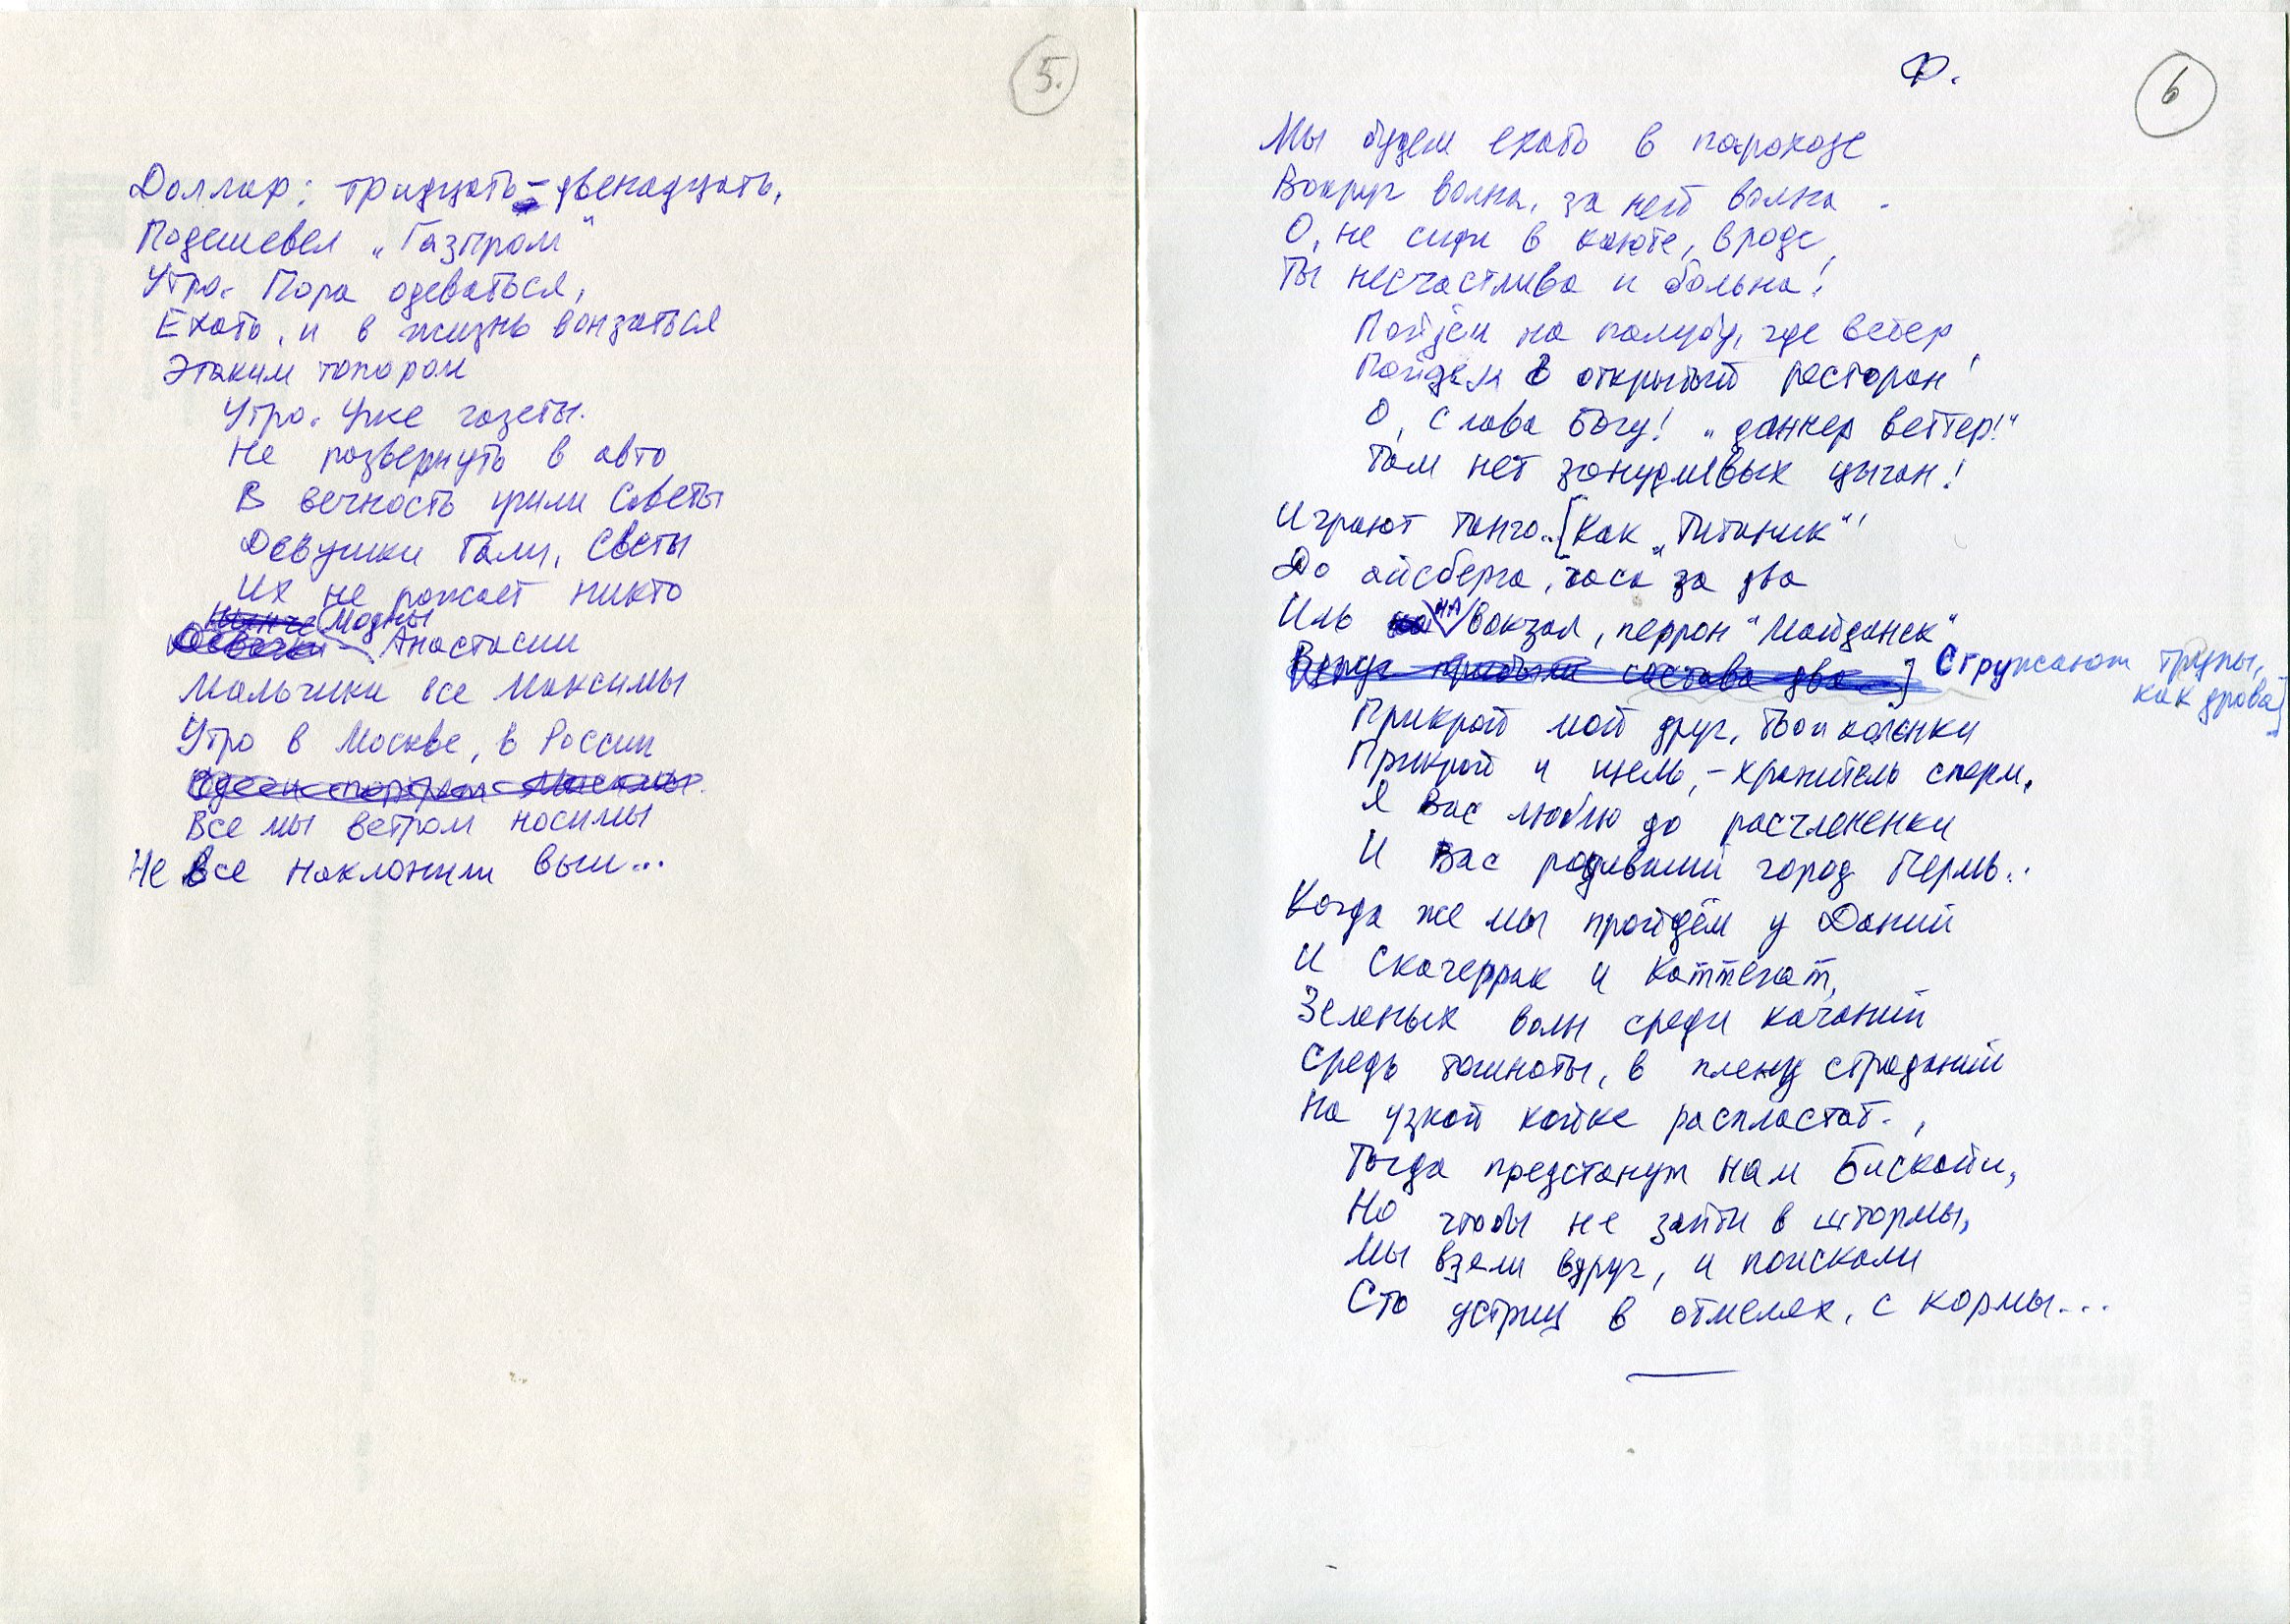 5.
Доллар: тридцать-двенадцать,
Подешевел „Газпром"
Утро. Пора одеваться,
Ехать, и в жизнь вонзаться
Этаким топором
Утро. Уже газеты.
Не развернуть в авто
В вечность ушли Советы
Девушки Гали, Светы
Их не рожает никто
Нынче Модны
Девочки - Анастасии
Мальчики все Максимы
Утро в Москве, в России
Все мы ветром носимы
Не все наклонили выи...
Ф.
6
Мы будем ехать в пароходе
Вокруг волна, за ней волна.
О, не сиди в каюте, вроде,
Ты несчастлива и больна!
Пойдём на палубу, где ветер,
Пойдём в открытый ресторан!
О, слава Богу! „даннер веттер!"
Там нет занудливых цыган!
Играют танго..[Как „Титаник"
До айсберга, часа за два
Иль на вокзал, перрон "Майданек"
Вдруг прибыли состава два] Сгружают трупы,
как дрова]
Прикрой мой друг, твои коленки
Прикрой и щель, - хранитель сперм,
Я Вас люблю до расчлененки
И Вас родивший город Пермь..
Когда же мы пройдём у Даний
И Скагеррак и Каттегат,
Зеленых волн среди качаний
Средь тошноты, в плену страданий
На узкой койке распластат.,
Тогда предстанут нам Бискайи,
Но чтобы не зайти в штормы,
Мы взяли вдруг, и поискали
Сто устриц в отмелях, с кормы...